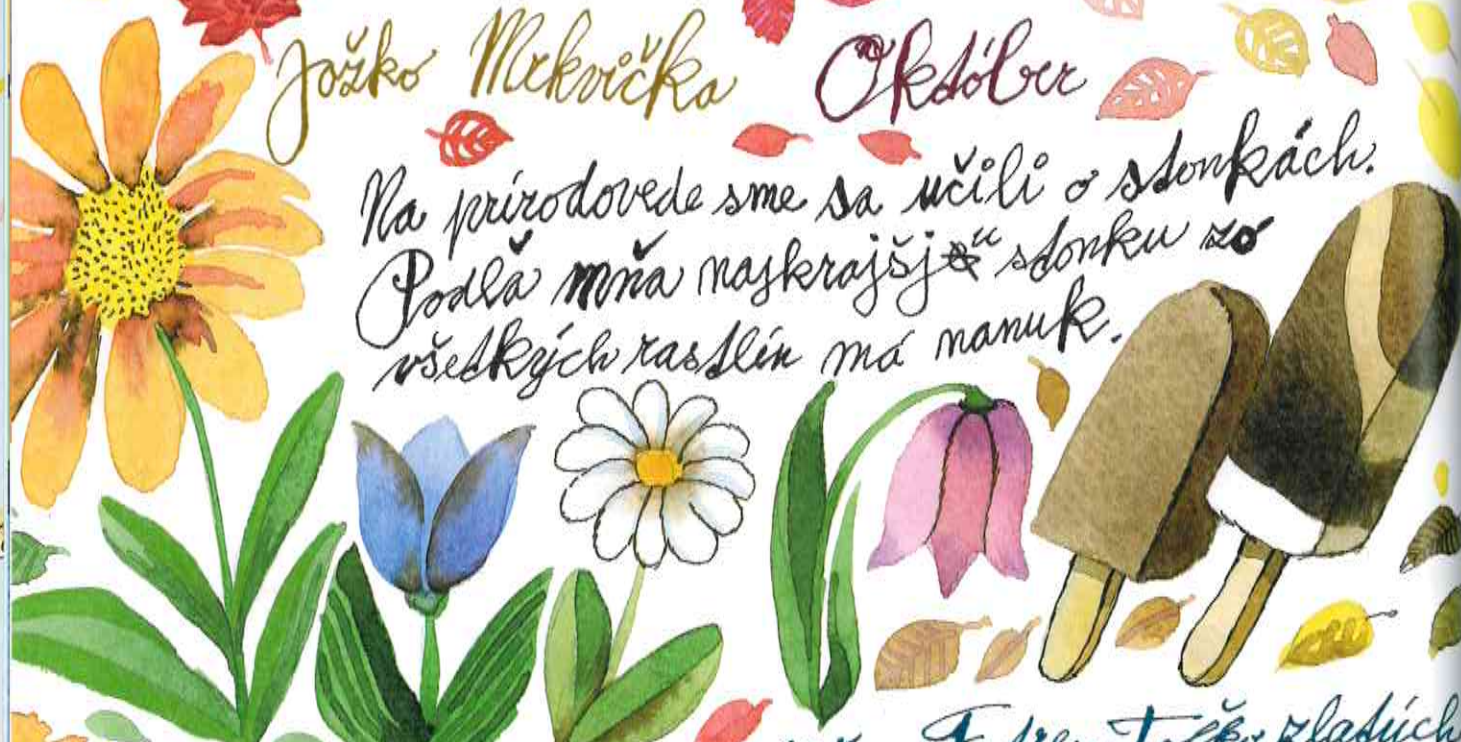 Jožko Mrkvička Október
Na prírodovede sme sa učili o stonkách.
Podľa mňa najkrajšju stonku zo
všetkých rastlín má nanuk.
zlatých